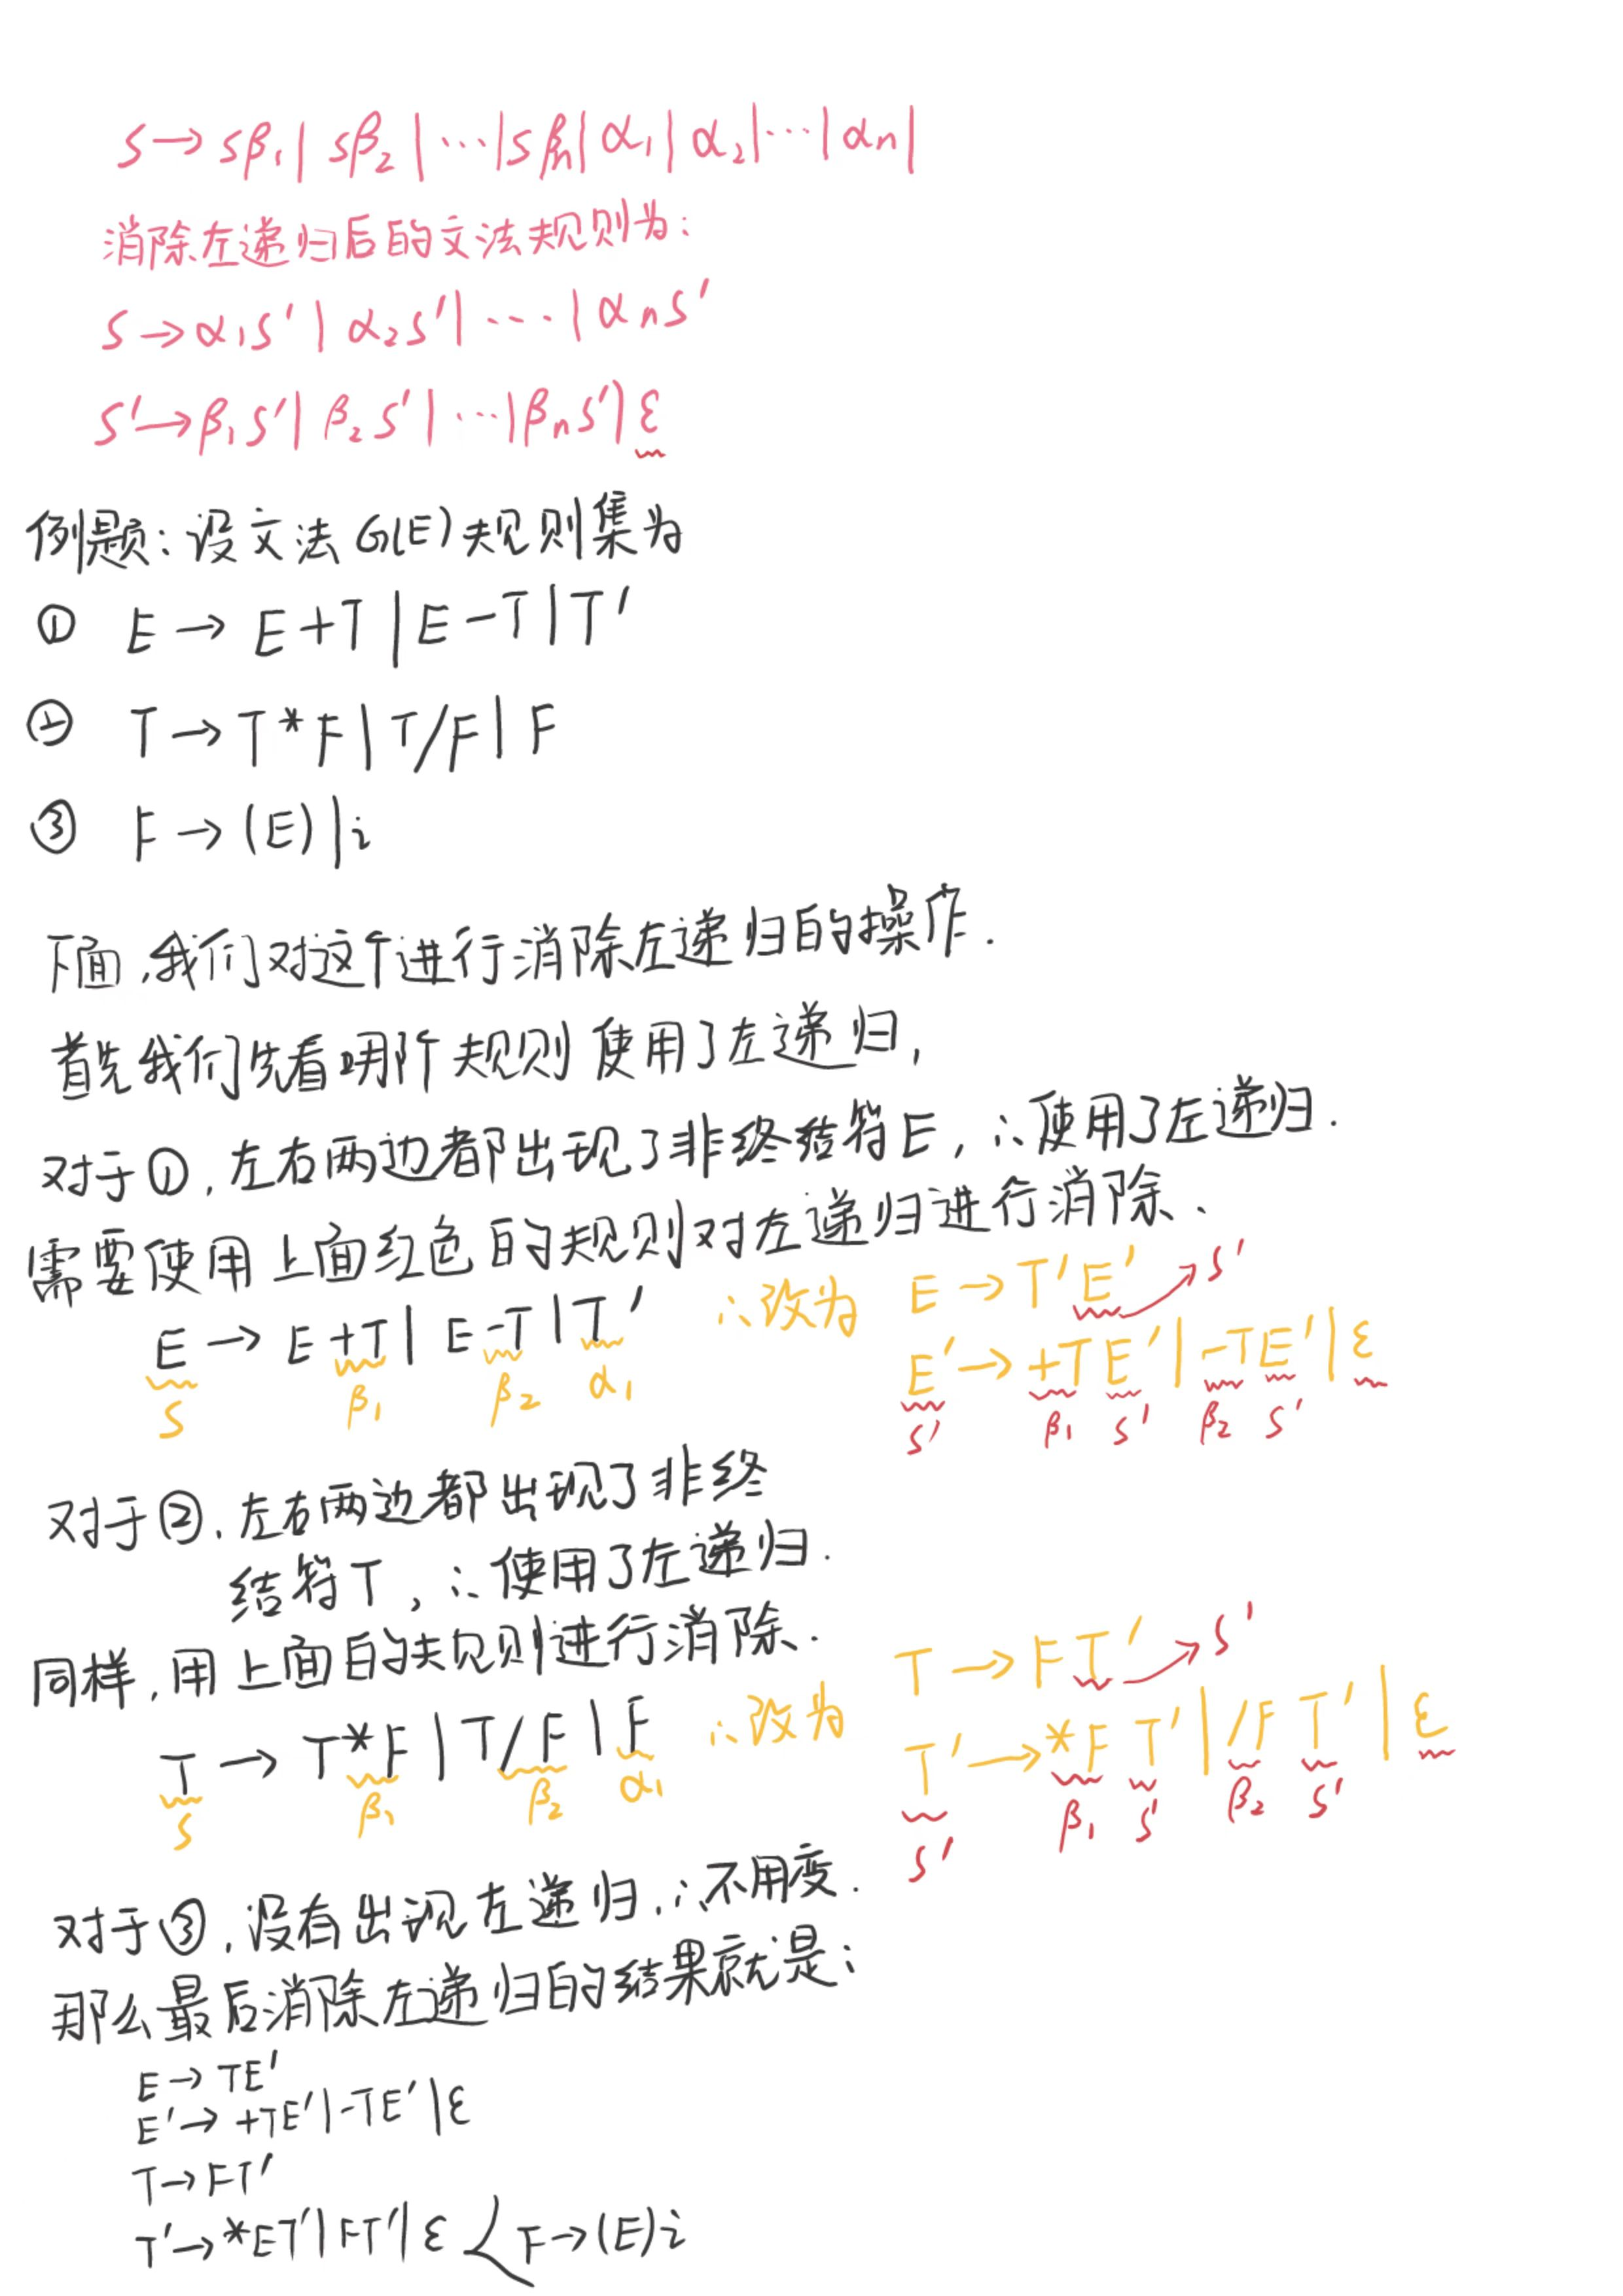 S→Sβ₁|Sβ₂|…|Sβn|α₁|α₂|…|αn|
消除左递归后的文法规则为:
S→α₁S'|α₂S'|…|αnS'
S'→β₁S'|β₂S'|…|βnS'|ε
例题:设文法G(E)规则集为
① E→E+T|E-T|T'
② T→T*F|T/F|F
③ F→(E)|i
下面,我们对这个进行消除左递归的操作.
首先我们先看哪个规则使用了左递归,
对于①,左右两边都出现了非终结符E,∴使用了左递归.
需要使用上面红色的规则对左递归进行消除、
E→E+T|E-T|T' ∴改为 E→T'E' S'
S β₁ β₂ α₁ E'→+TE'|-TE'|ε
S' β₁ S' β₂ S'
对于②,左右两边都出现了非终
结符T,∴使用了左递归.
同样,用上面的规则进行消除.
T→T*F|T/F|F ∴改为 T→FT' S'
S β₁ β₂ α₁ T'→*FT'|/FT'|ε
S' β₁ S' β₂ S'
对于③,没有出现左递归,∴不用变.
那么最后消除左递归的结果就是:
E→TE'
E'→+TE'|-TE'|ε
T→FT'
T'→*ET'|FT'|ε F→(E)i